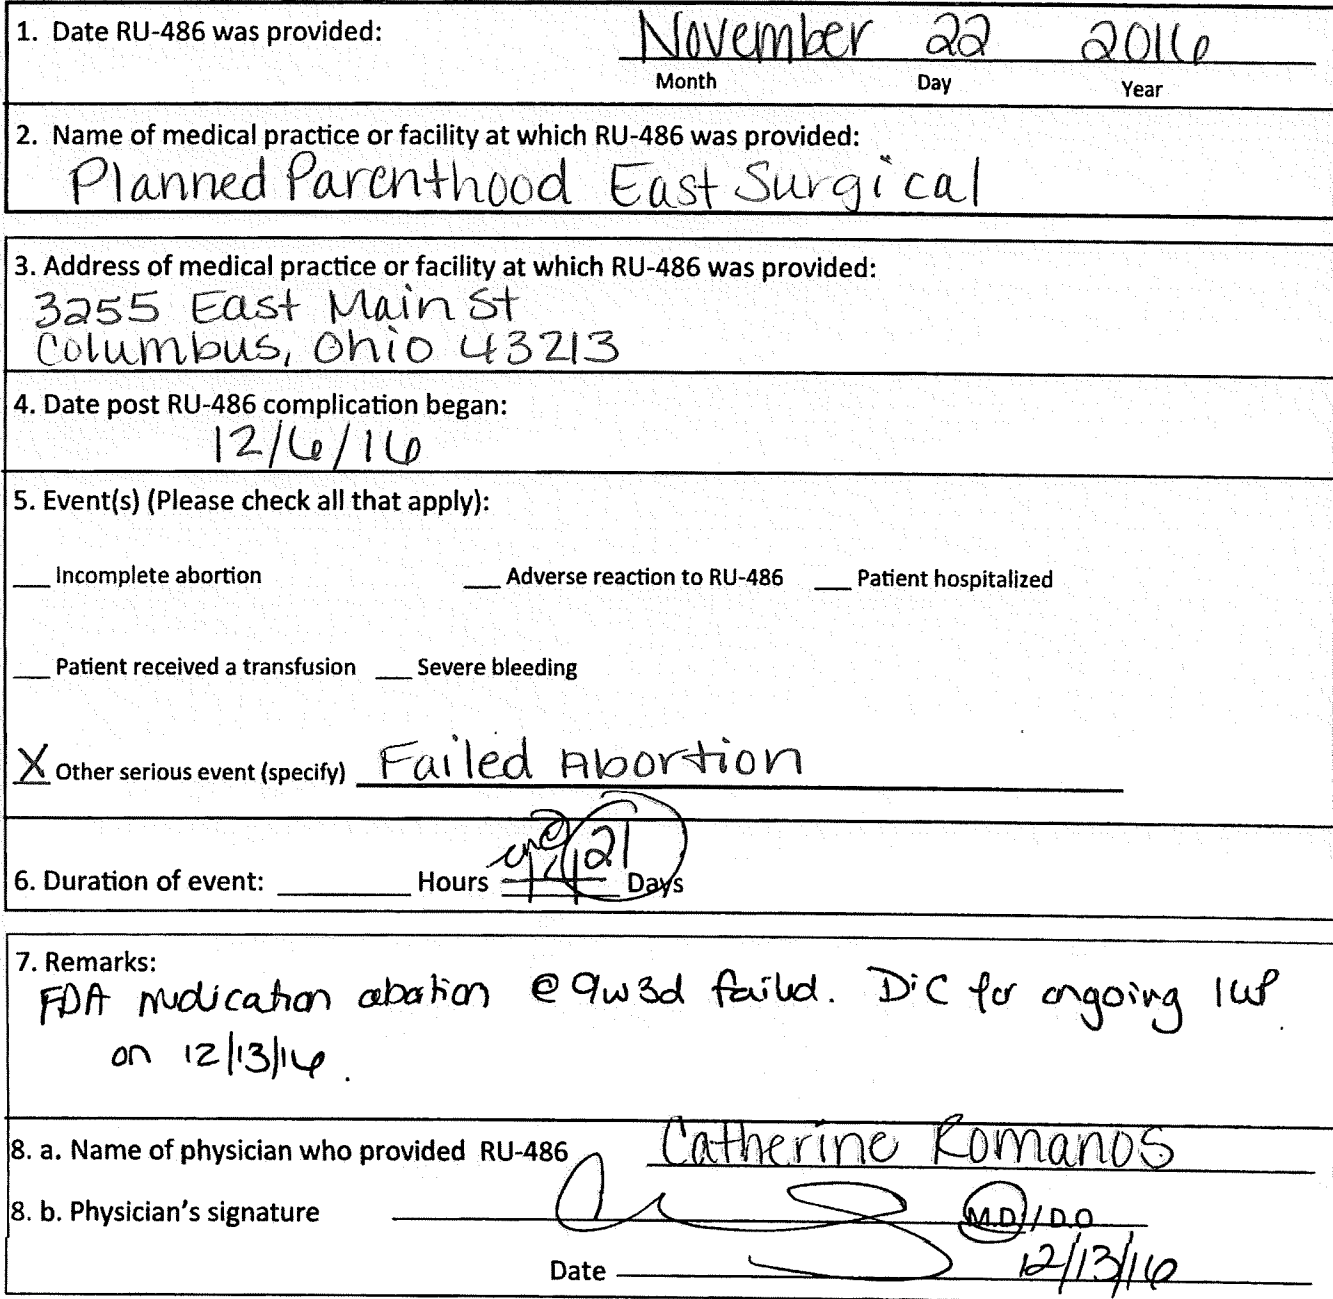 1. Date RU-486 was provided: November 22 2016
Month Day Year
2. Name of medical practice or facility at which RU-486 was provided:
Planned Parenthood East Surgical
3. Address of medical practice or facility at which RU-486 was provided:
3255 East Main St
Columbus, Ohio 43213
4. Date post RU-486 complication began:
12/6/16
5. Event(s) (Please check all that apply):
___ Incomplete abortion ___ Adverse reaction to RU-486 ___ Patient hospitalized
___ Patient received a transfusion ___ Severe bleeding
X Other serious event (specify) Failed Abortion
6. Duration of event: ________ Hours 14 21 Days
7. Remarks:
FDA medication abortion @ 9w3d failed. D&C for ongoing IUP
on 12/13/16.
8. a. Name of physician who provided RU-486 Catherine Romanos
8. b. Physician's signature M.D/D.O
Date 12/13/16